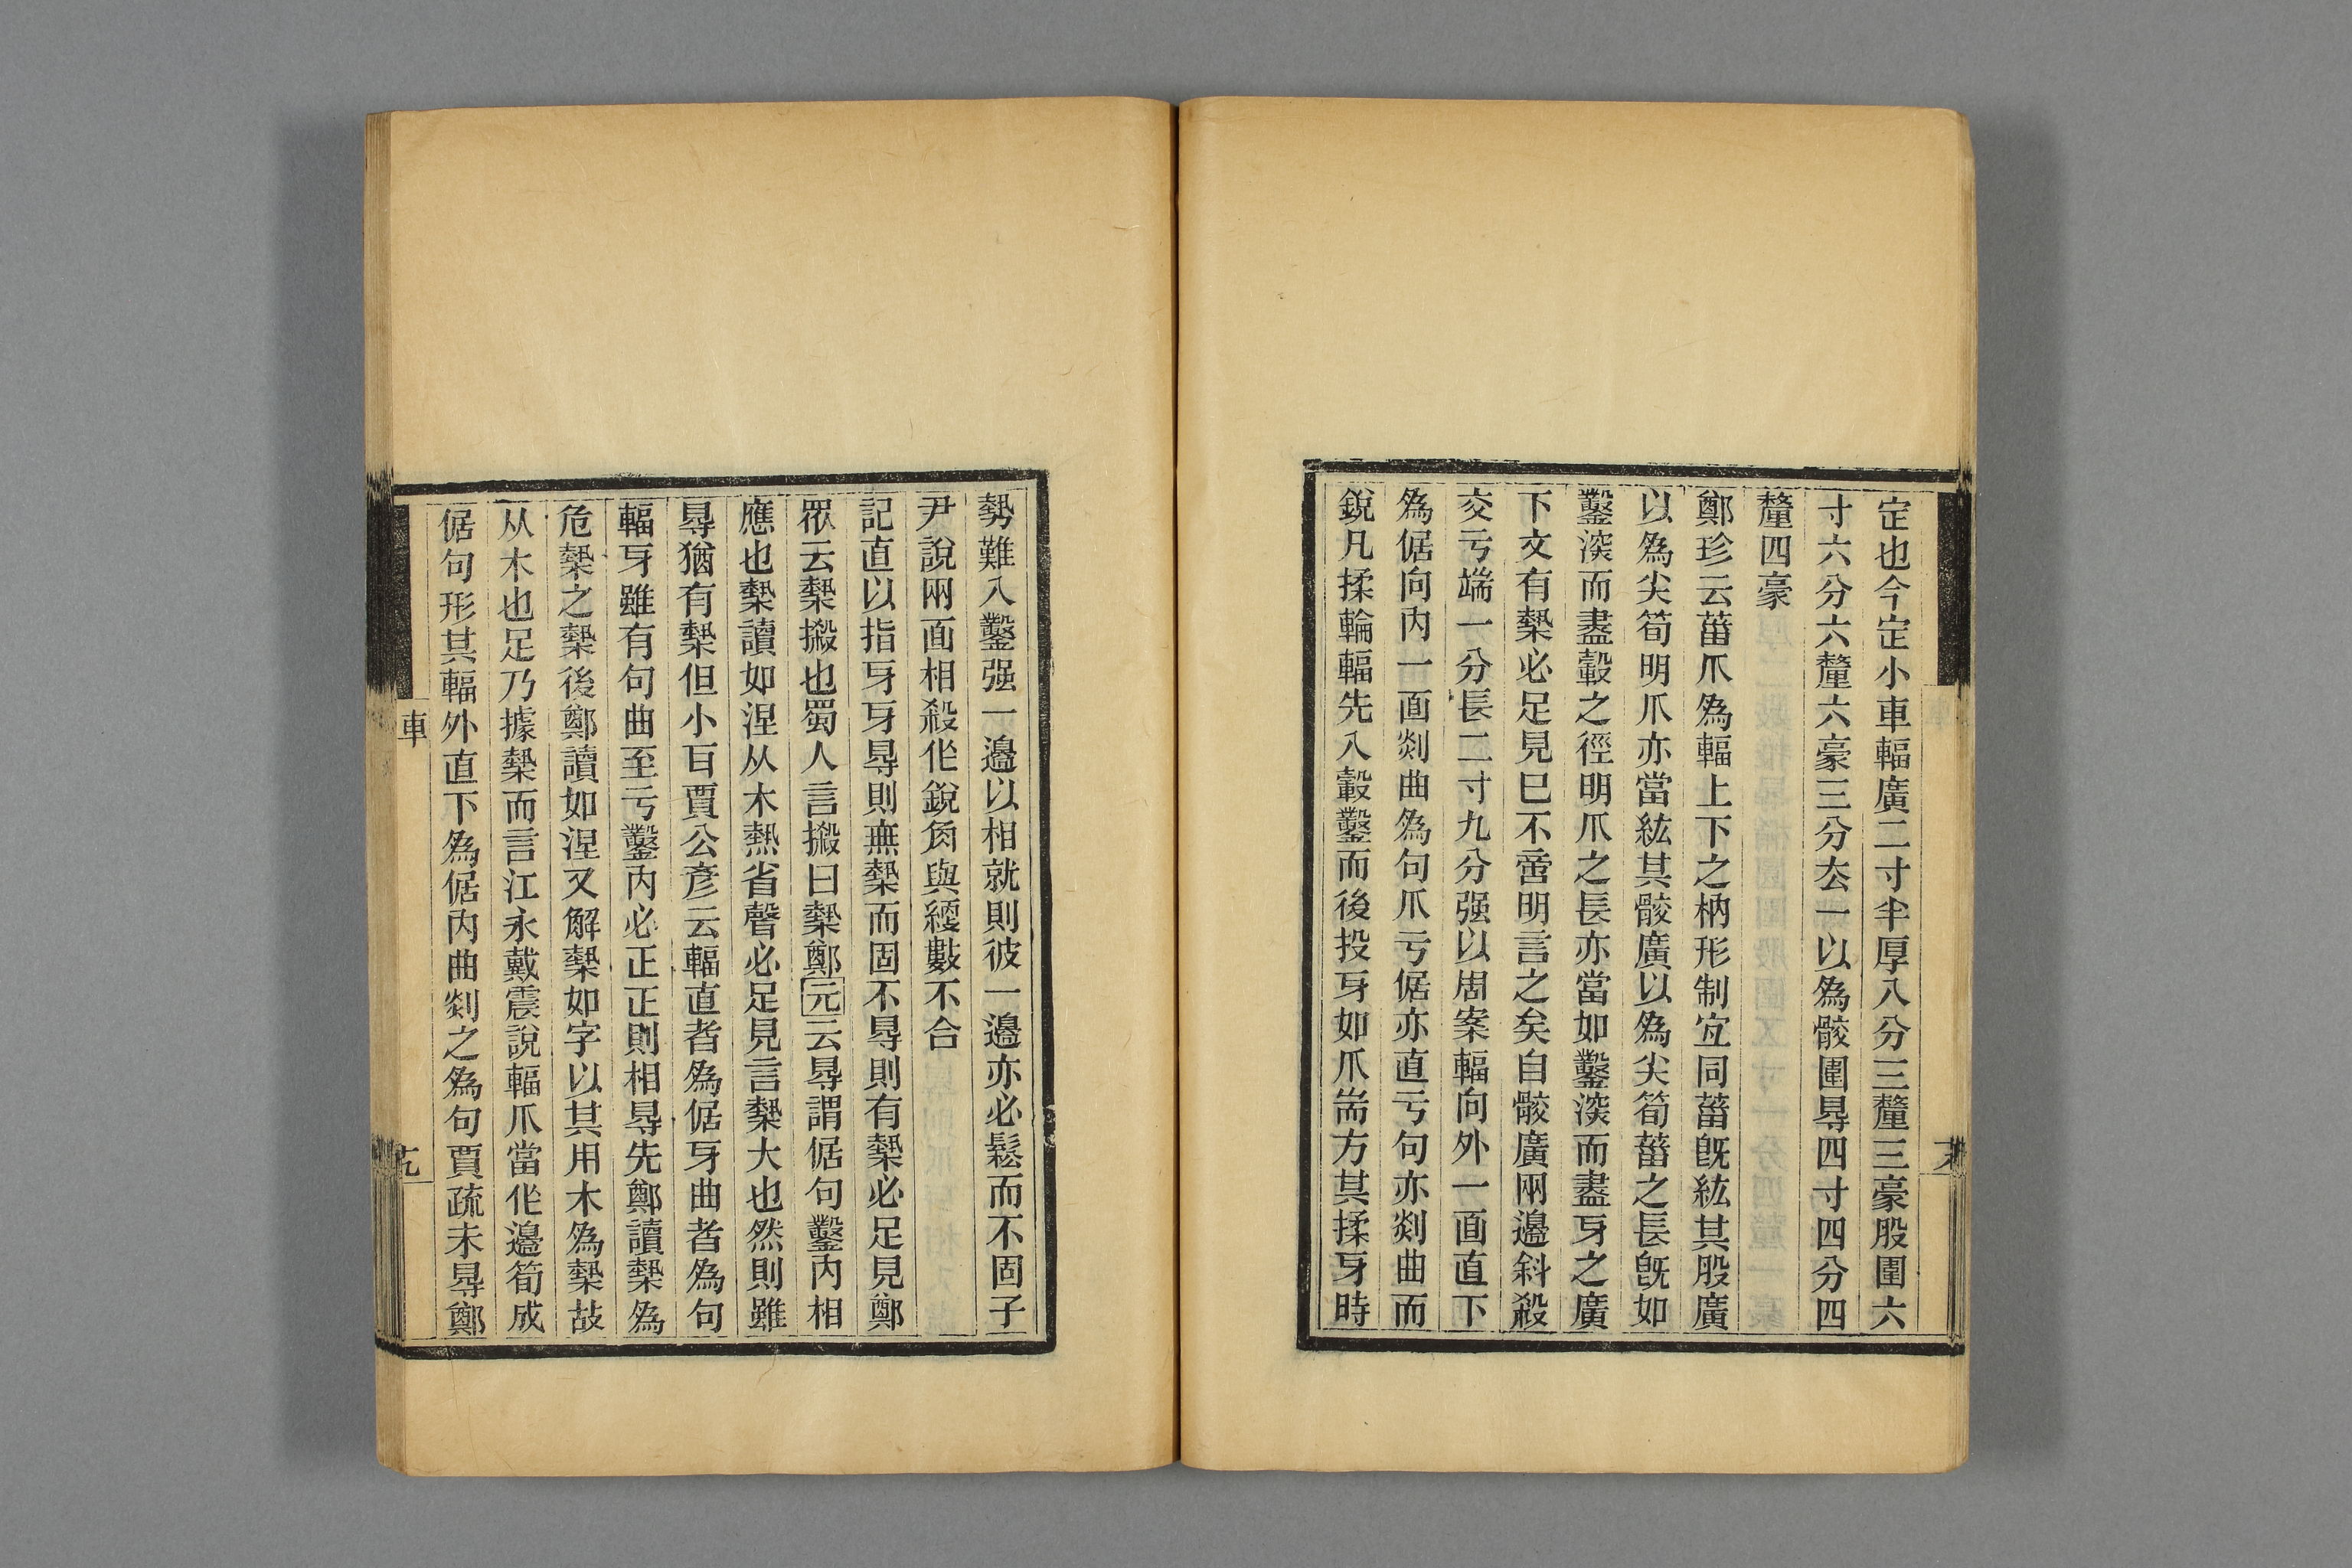 定也今定小車輻廣二寸半厚八分三釐三豪股圍六
寸六分六釐六豪三分厺一以爲骹圍㝵四寸四分四
釐四豪
鄭珍云菑爪爲輻上下之枘形制宐同菑旣紘其股廣
以爲尖筍明爪亦當紘其骹廣以爲尖筍菑之長旣如
鑿深而盡轂之徑明爪之長亦當如鑿深而盡牙之廣
下文有槷必足見巳不啻明言之矣自骹廣兩邊斜殺
交亏端一分長二寸九分强以周案輻向外一面直下
爲倨向內一面剡曲爲句爪亏倨亦直亏句亦剡曲而
銳凡揉輪輻先入轂鑿而後投牙如爪耑方其揉牙時
勢難入鑿强一邊以相就則彼一邊亦必鬆而不固子
尹說兩面相殺作銳角與綆數不合
記直以指牙牙㝵則無槷而固不㝵則有槷必足見鄭
眾云槷摋也蜀人言摋曰槷鄭元云㝵謂倨句鑿內相
應也槷讀如涅从木熱省聲必足見言槷大也然則雖
㝵猶有槷但小耳賈公彥云輻直者爲倨牙曲者爲句
輻牙雖有句曲至亏鑿內必正正則相㝵先鄭讀槷爲
危槷之槷後鄭讀如涅又解槷如字以其用木爲槷故
从木也足乃據槷而言江永戴震說輻爪當作邊筍成
倨句形其輻外直下爲倨內曲剡之爲句賈疏未㝵鄭
車